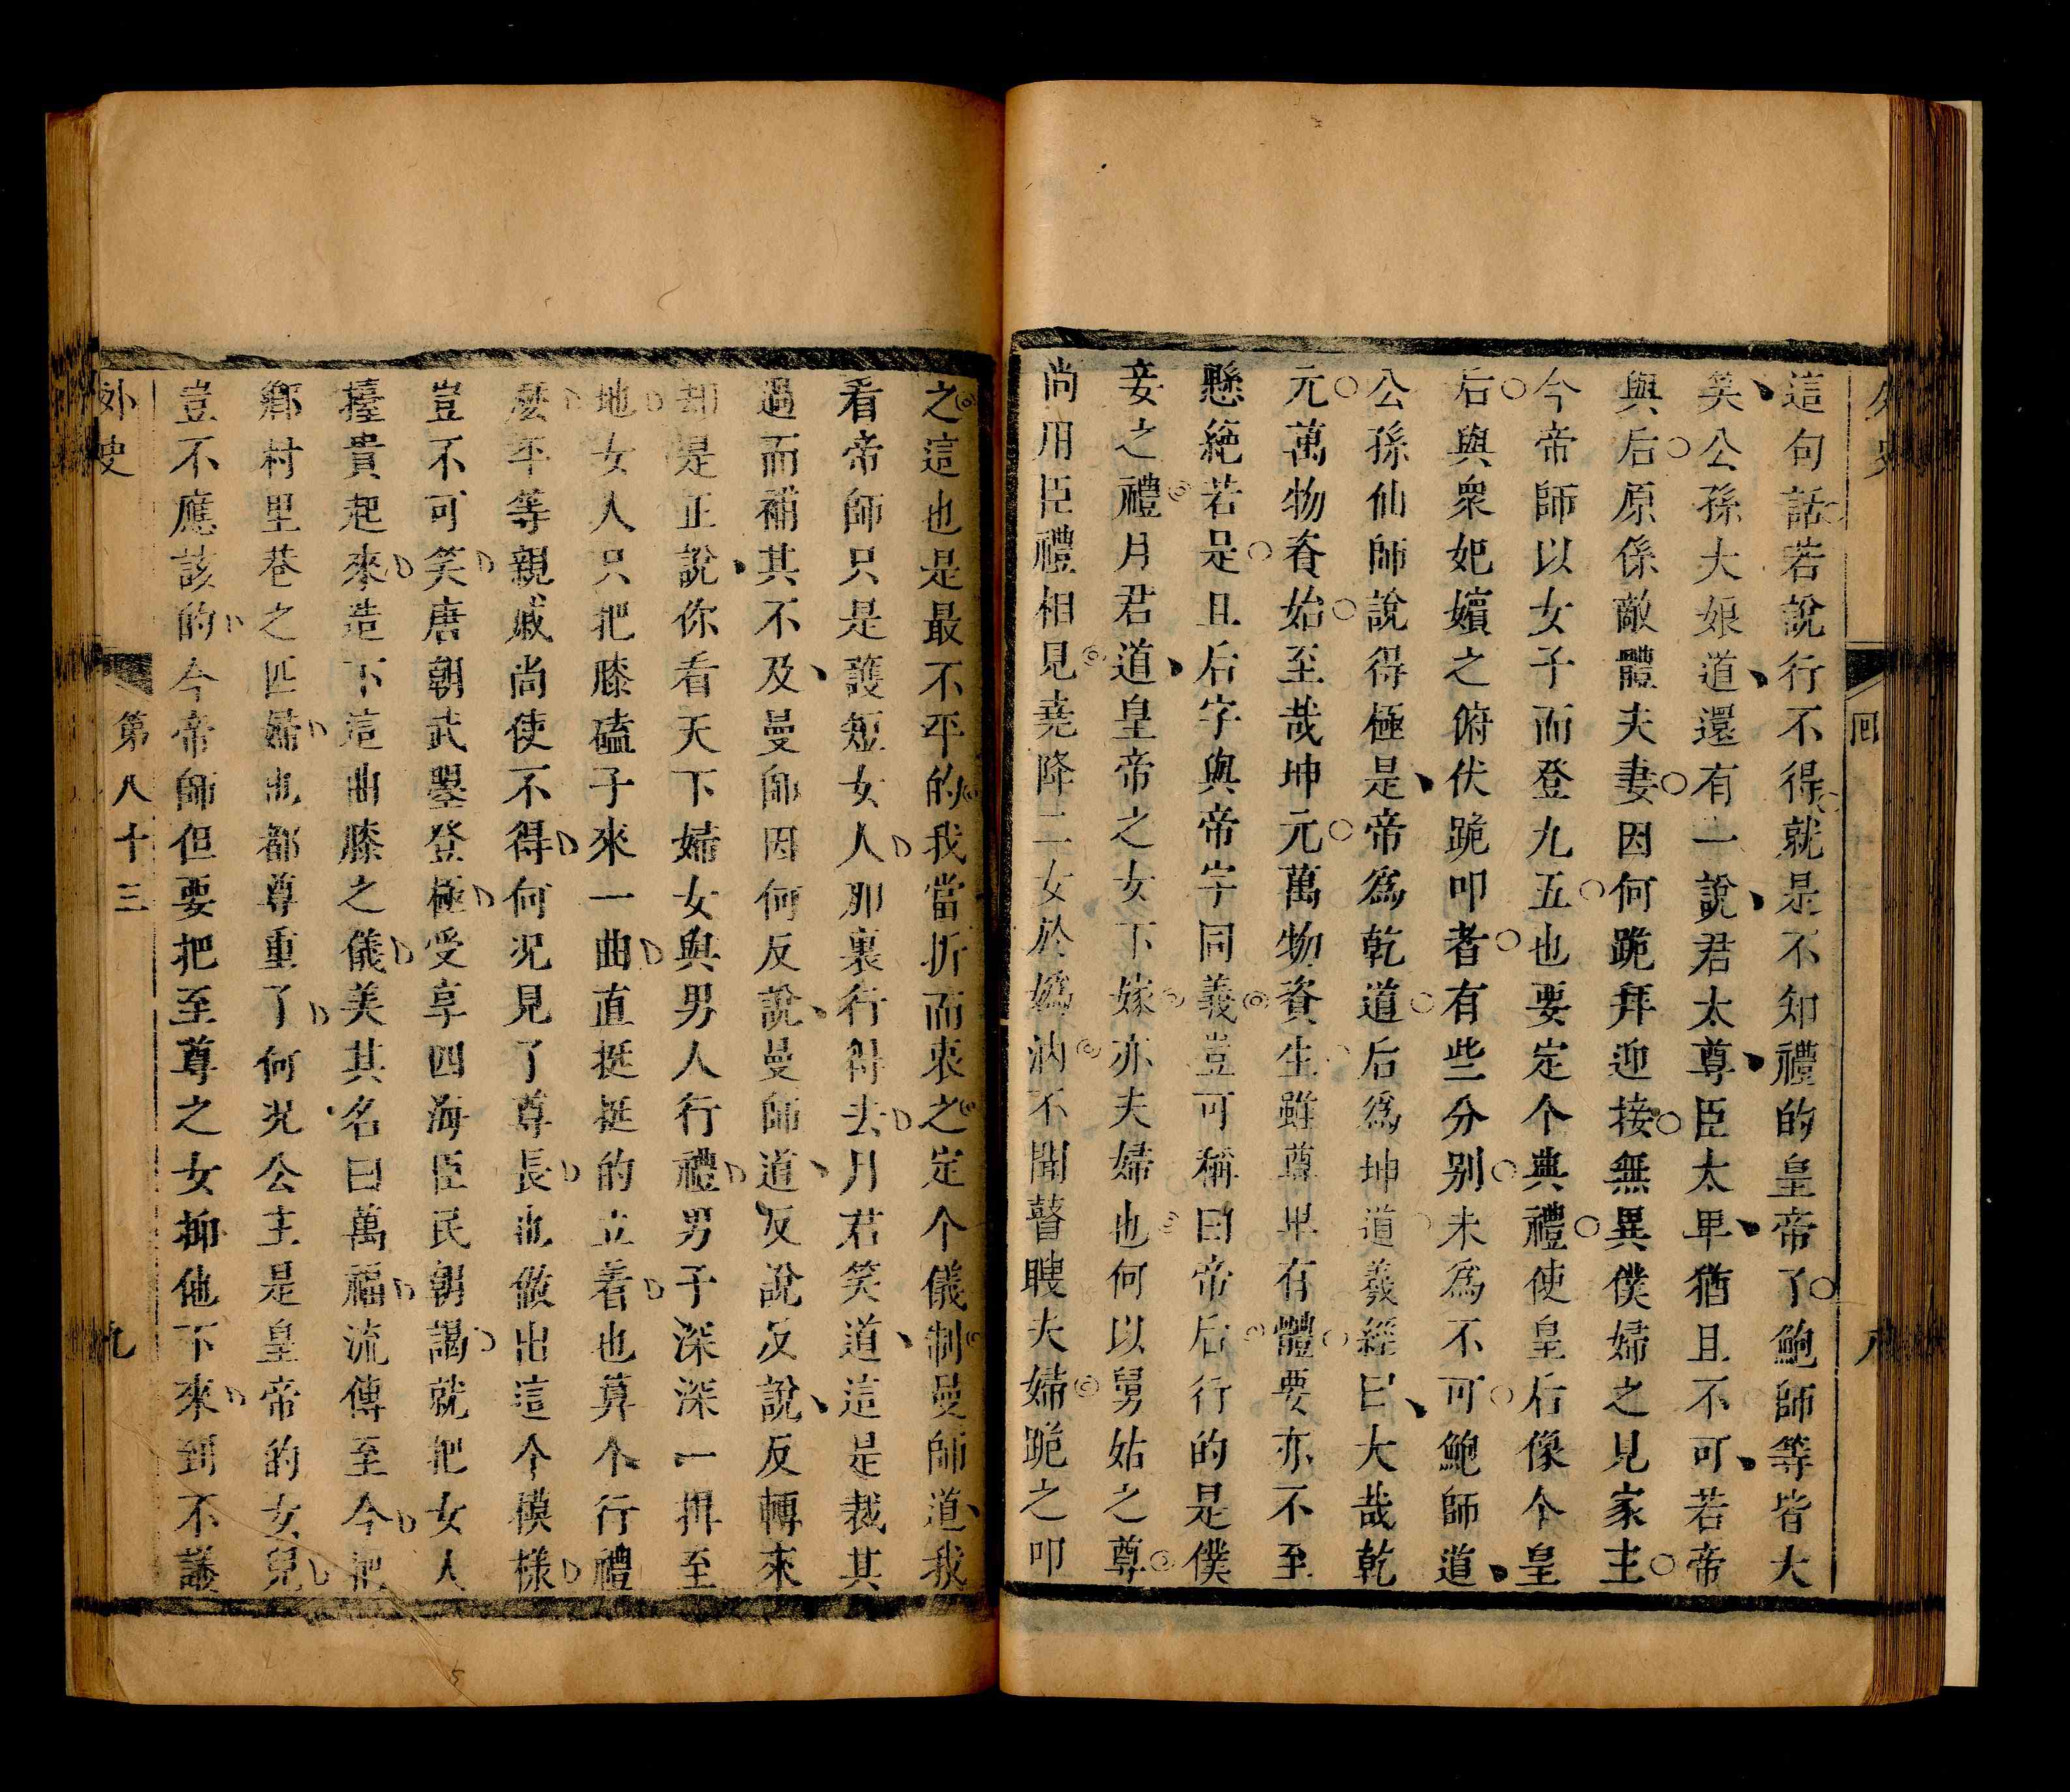 外史
回
八
這句話若說行不得就是不知禮的皇帝了鮑師等皆大
笑公孫大娘道還有一說君太尊臣太卑猶且不可若帝
與后原係敵體夫妻因何跪拜迎接無異僕婦之見家主
今帝師以女子而登九五也要定个典禮使皇后像个皇
后與衆妃嬪之俯伏跪叩者有些分别未爲不可鮑師道
公孫仙師說得極是帝爲乾道后爲坤道羲經曰大哉乾
元萬物資始至哉坤元萬物資生雖尊卑有體要亦不至
懸絕若是且后字與帝字同義豈可稱曰帝后行的是僕
妾之禮月君道皇帝之女下嫁亦夫婦也何以舅姑之尊
尚用臣禮相見堯降二女於嬀汭不聞瞽瞍夫婦跪之叩
之這也是最不平的我當折而衷之定个儀制曼師道我
看帝師只是護短女人那裏行得去月君笑道這是裁其
過而補其不及曼師因何反說曼師道反說反說反轉來
却是正說你看天下婦女與男人行禮男子深深一揖至
地女人只把膝磕子來一曲直挺挺的立着也算个行禮
麽平等親戚尚使不得何况見了尊長也做出這个模樣
豈不可笑唐朝武曌登極受享四海臣民朝謁就把女人
擡貴起來造下這曲膝之儀美其名曰萬福流傳至今把
鄉村里巷之匹婦也都尊重了何况公主是皇帝的女兒
豈不應該的今帝師但要把至尊之女抑他下來到不議
外史
第八十三
九